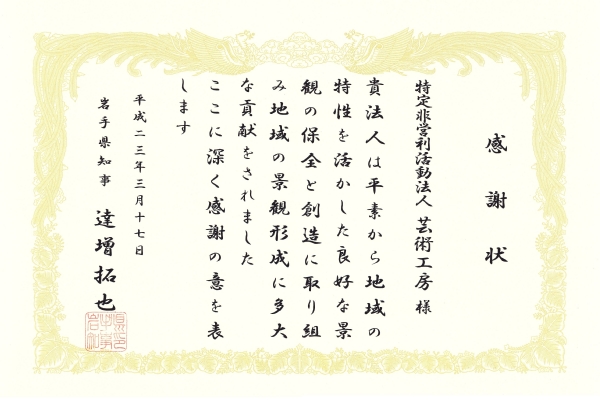 感謝状
特定非営利活動法人 芸術工房 様
貴法人は平素から地域の
特性を活かした良好な景
観の保全と創造に取り組
み地域の景観形成に多大
な貢献をされました
ここに深く感謝の意を表
します
平成二三年三月十七日
岩手県知事 達増拓也